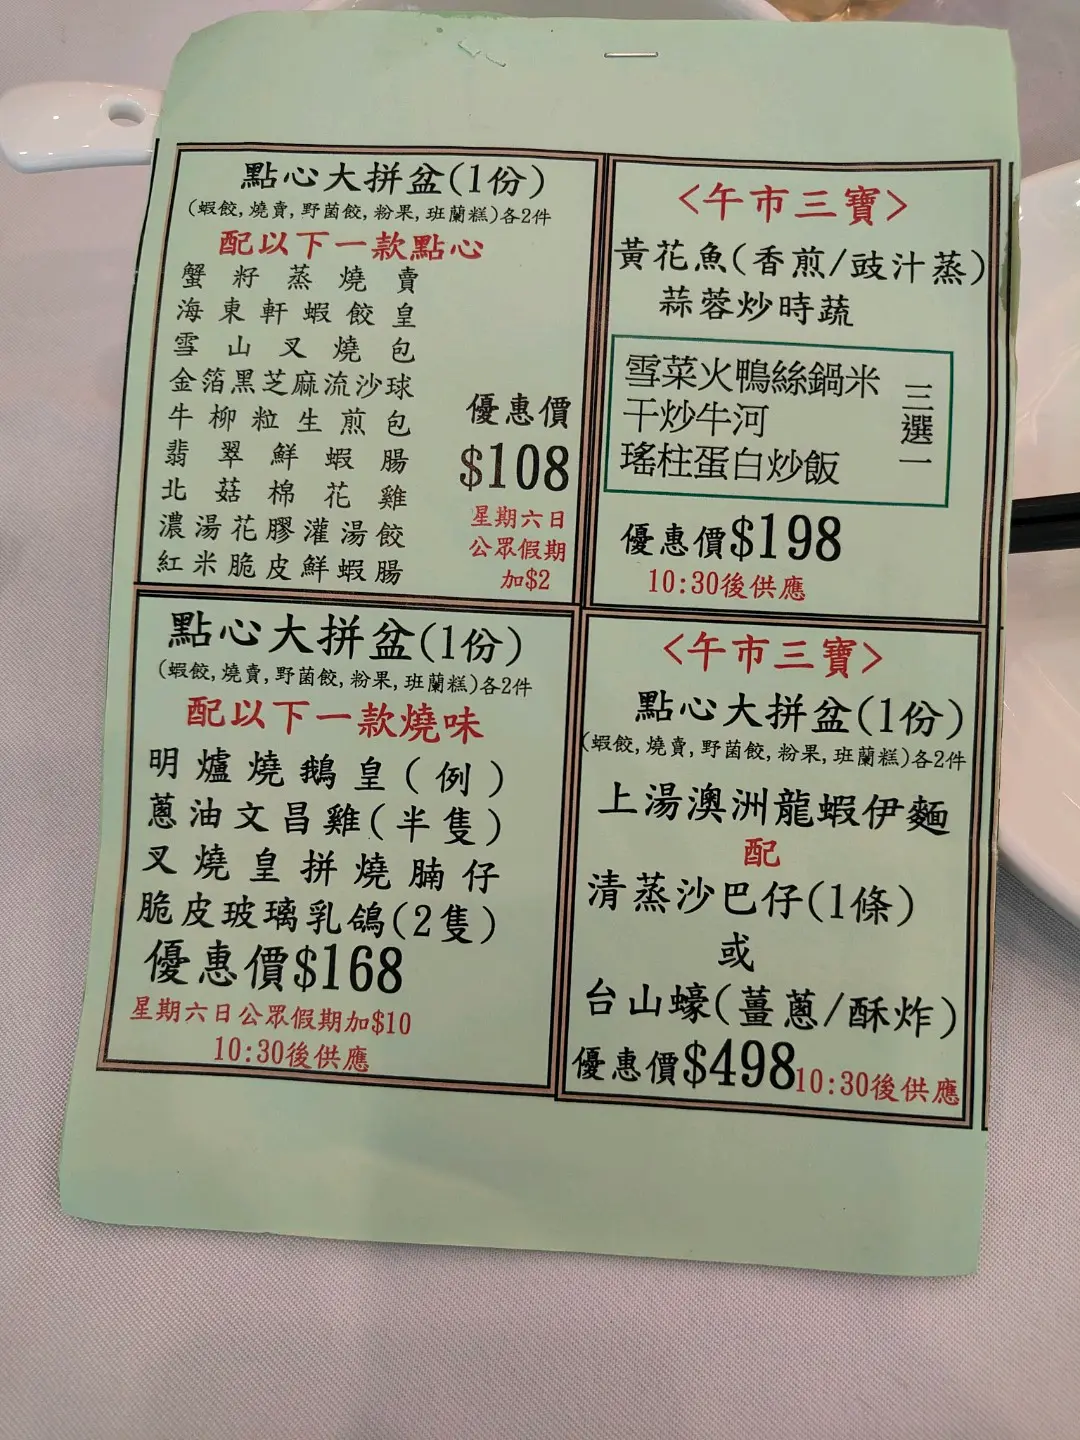 點心大拼盆(1份)
(蝦餃,燒賣,野菌餃,粉果,班蘭糕)各2件
配以下一款點心
蟹籽蒸燒賣
海東軒蝦餃皇
雪山叉燒包
金箔黑芝麻流沙球
牛柳粒生煎包
翡翠鮮蝦腸
北菇棉花雞
濃湯花膠灌湯餃
紅米脆皮鮮蝦腸
優惠價
$108
星期六日
公眾假期
加$2
<午市三寶>
黃花魚(香煎/豉汁蒸)
蒜蓉炒時蔬
雪菜火鴨絲鍋米
干炒牛河
瑤柱蛋白炒飯
三選一
優惠價$198
10:30後供應
點心大拼盆(1份)
(蝦餃,燒賣,野菌餃,粉果,班蘭糕)各2件
配以下一款燒味
明爐燒鵝皇(例)
蔥油文昌雞(半隻)
叉燒皇拼燒腩仔
脆皮玻璃乳鴿(2隻)
優惠價$168
星期六日公眾假期加$10
10:30後供應
<午市三寶>
點心大拼盆(1份)
(蝦餃,燒賣,野菌餃,粉果,班蘭糕)各2件
上湯澳洲龍蝦伊麵
配
清蒸沙巴仔(1條)
或
台山蠔(薑蔥/酥炸)
優惠價$498 10:30後供應